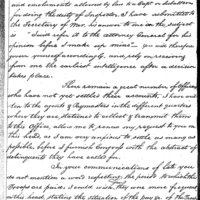 and emoluments allowed by law to Capt in addition
to doing the duty of Inspector, I have submitted to
the Secretary of War, his answer to me on the subject
is "I will refer it to the Attorney General for his
opinion before I make up mine" you will therefore
govern yourself accordingly, and rely on receiving
from me the earliest intelligence after a decision
takes place.
There remain a great number of Officers
who have not yet settled their accounts. I have written
to the agents & Paymasters in the different quarters
where they are stationed to collect & transmit them
to this Office, allow me to renew my request to you on
this head, as I am very anxious to settle as many as
possible, before I furnish Congress with the abstract of
delinquents they have called for.
In your communications of late you
do not mention a word respecting the period to which the
Troops are paid. I could wish they were more frequent
on this head, stating the situation of the pay &c. of the Troops